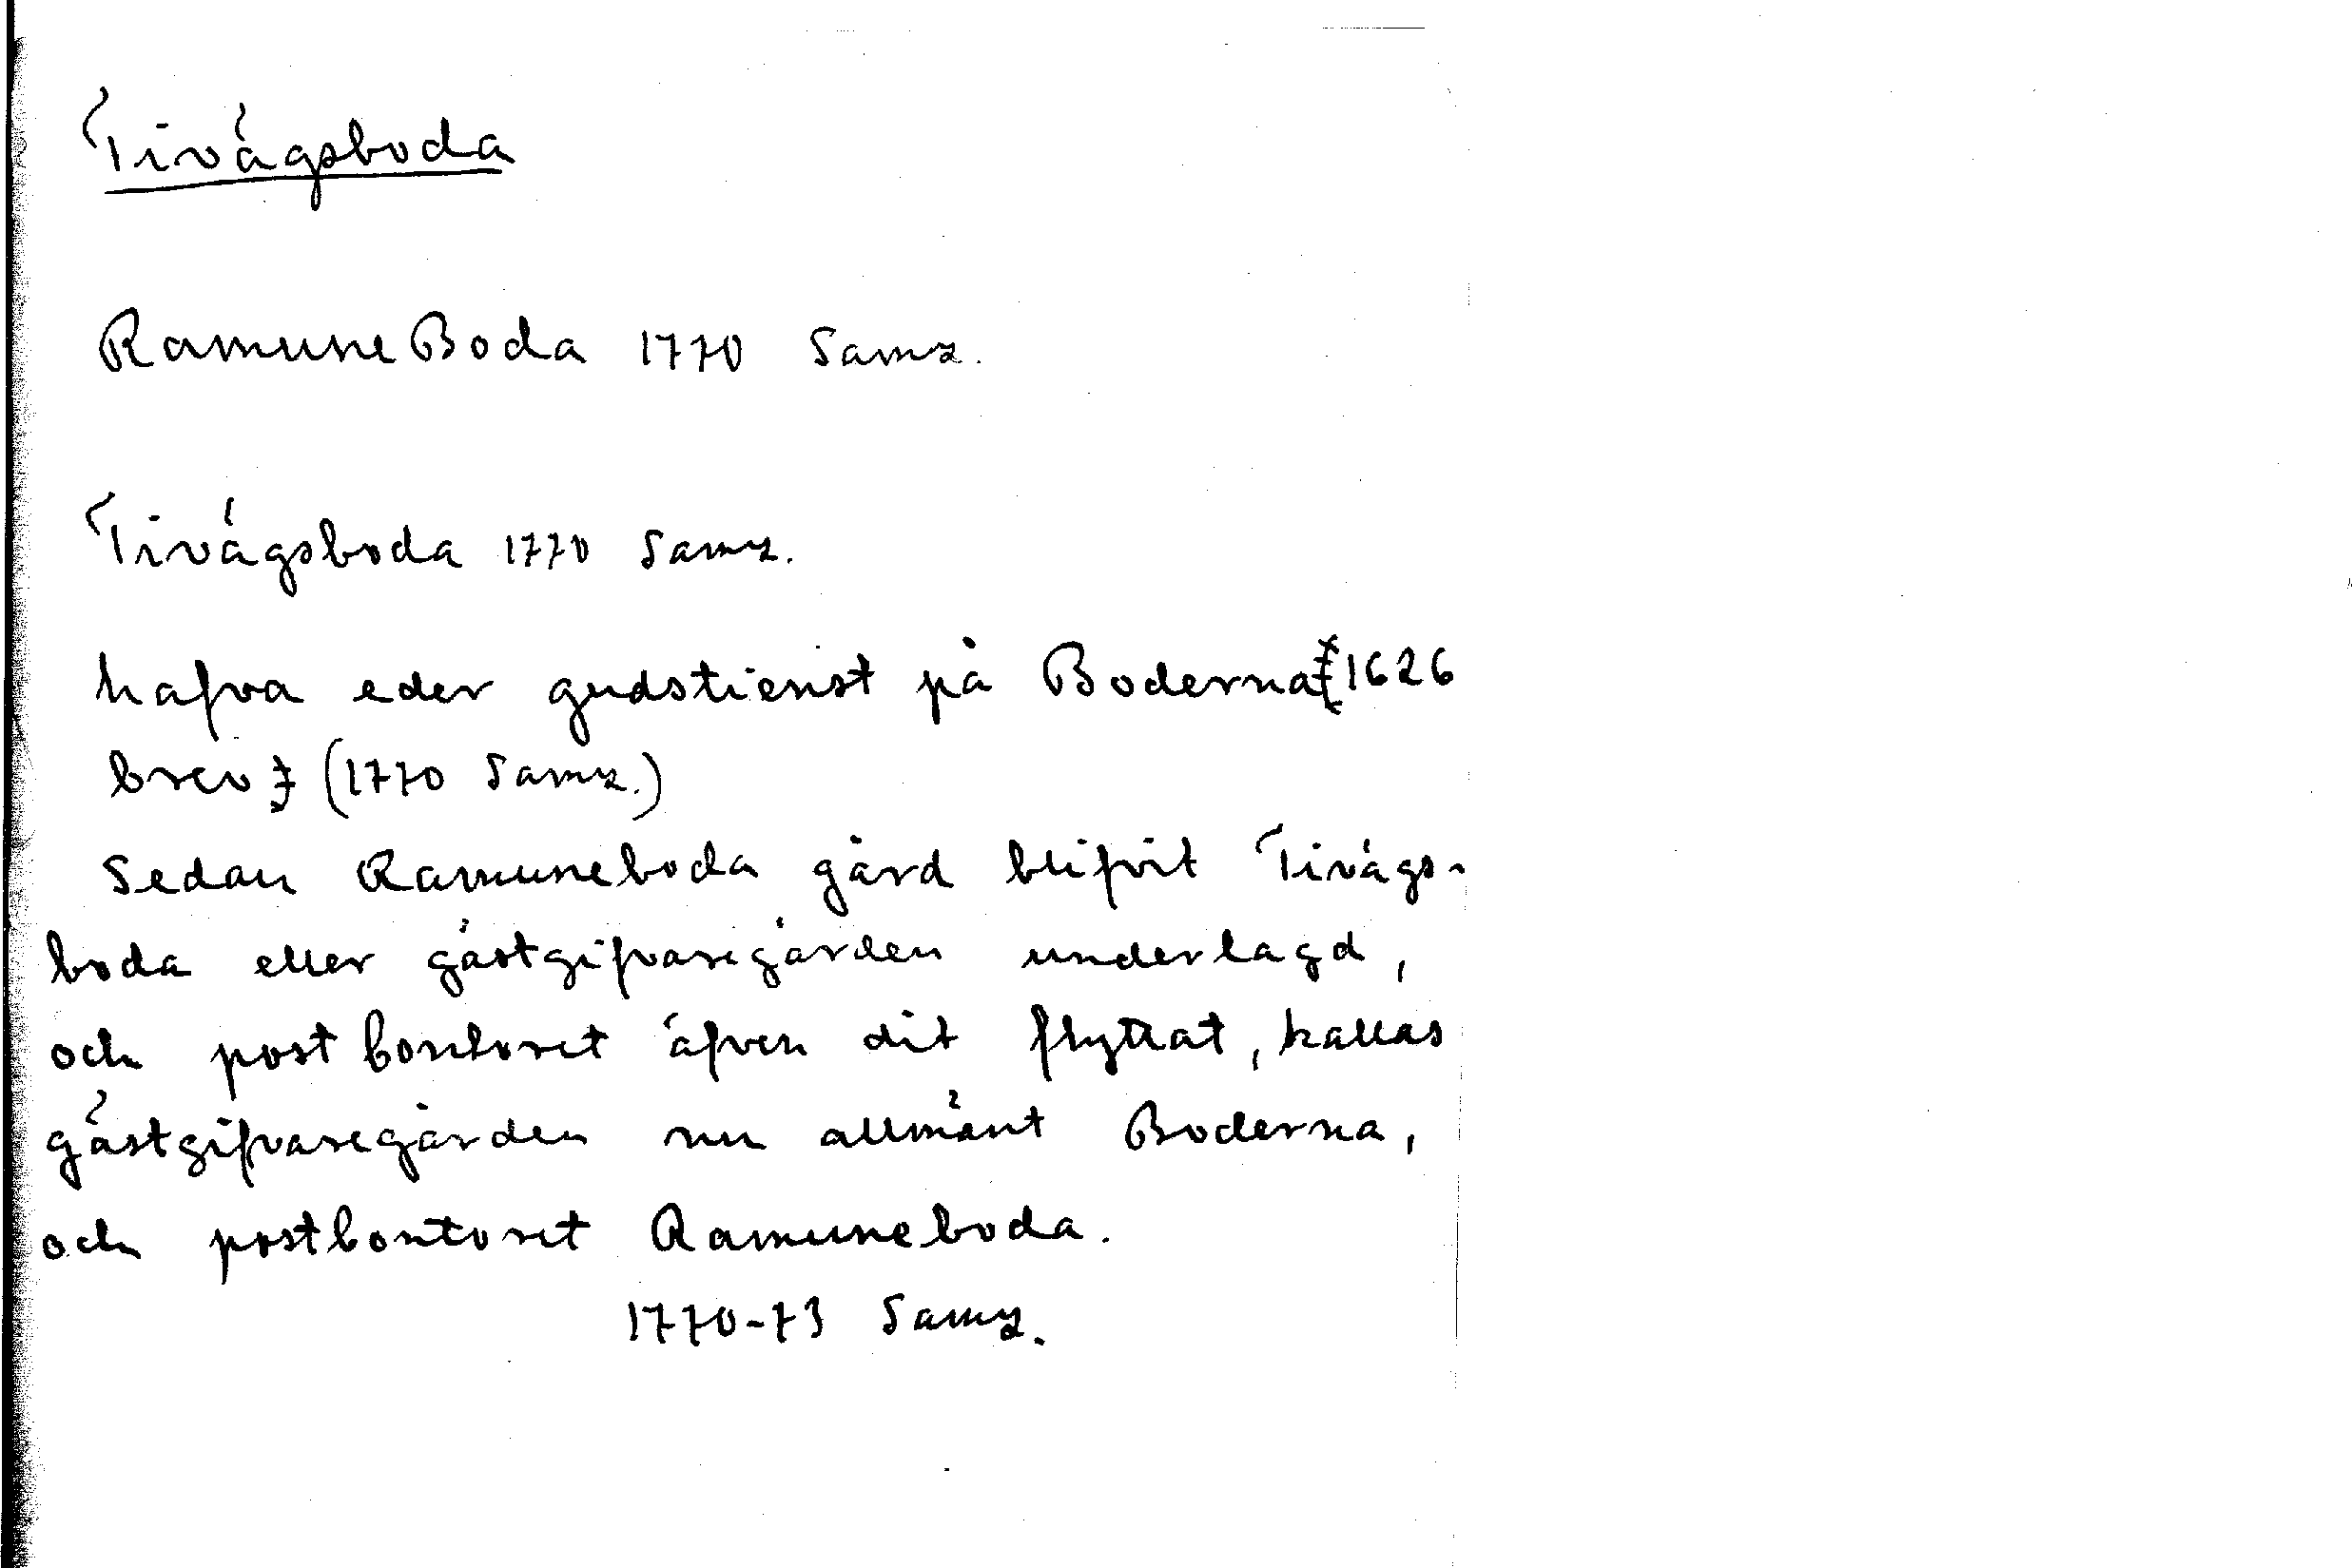 Tivägsboda
RamuneBoda 1770 Samz.
Tivägsboda 1770 Samz.
hafva eder gudstienst på Boderna [1626
brev] (1770 Samz.)
Sedan Ramuneboda gård blifvit Tivägs-
boda eller gästgifvaregården underlagd,
och postcontoret äfven dit flyttat, kallas
gästgifvaregården nu allmänt Boderna,
och postcontoret Ramuneboda.
1770-73 Samz.